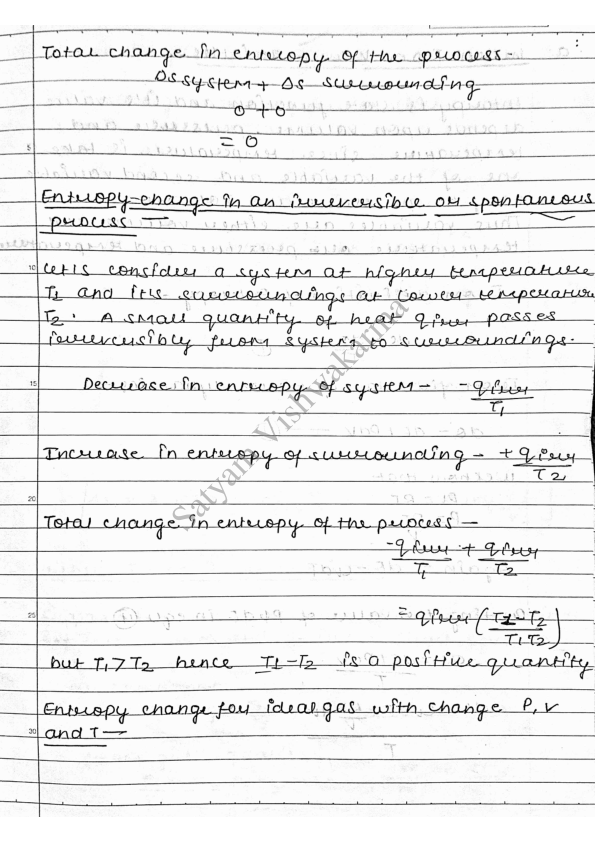 Total change in entropy of the process -
Δs system + Δs surrounding
0 + 0
= 0
5
Entropy change in an irreversible or spontaneous
process —
10 Let's consider a system at higher temperature
T1 and it's surroundings at lower temperature
T2. A small quantity of heat qirr passes
irreversibly from system to surroundings.
15 Decrease in entropy of system - -qirr/T1
Increase in entropy of surrounding - +qirr/T2
20
Total change in entropy of the process -
-qirr/T1 + qirr/T2
25 = qirr (T1-T2/T1T2)
but T1 > T2 hence T1-T2 is a positive quantity
Entropy change for ideal gas with change P, V
30 and T —
Satyam Vishwakarma